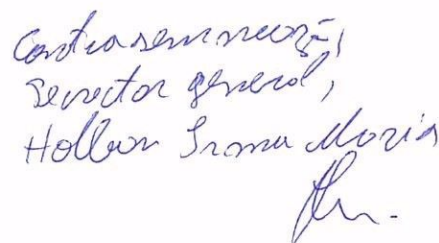 Contrasemnează,
Secretar general,
Holbon Irma Maria